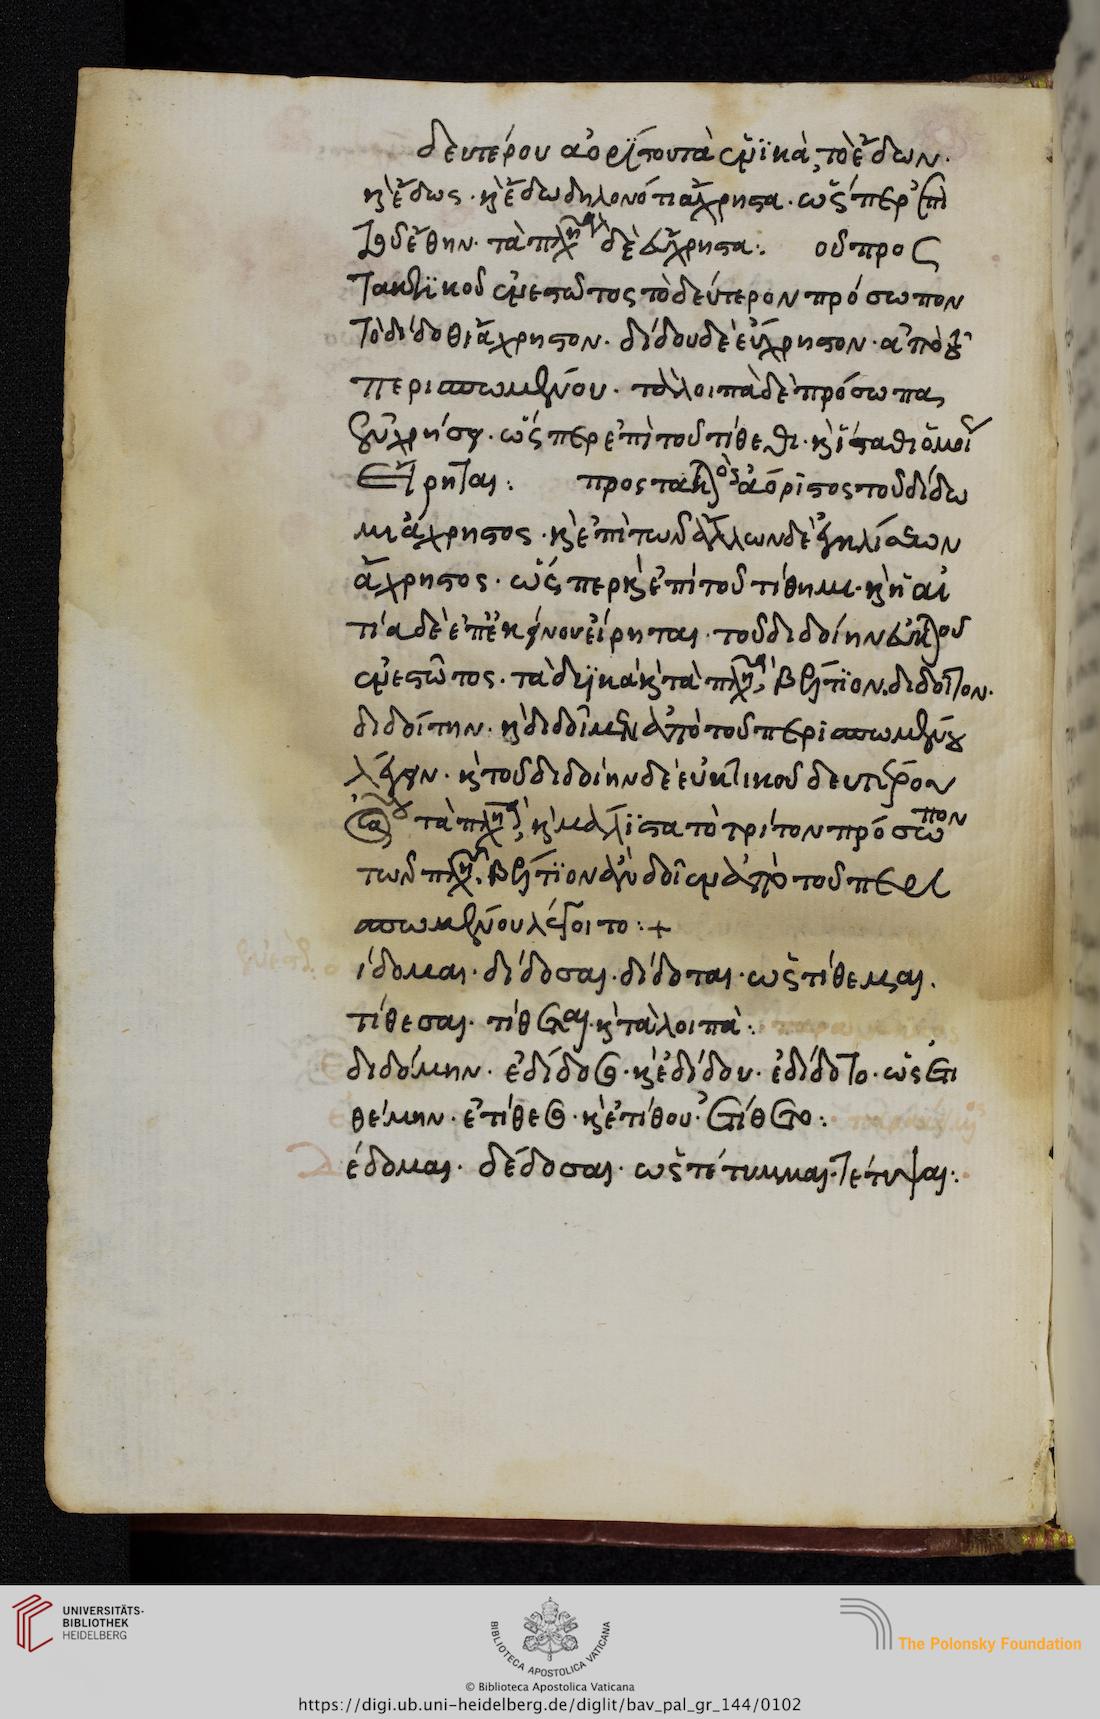 δευτέρου ἀορίστου τὰ ἑνϊκὰ, τὸ ἔδων.
κ ἔδως. κ ἔδω δηλονότι ἄχρηστα. ὥσπερ ἐπὶ
τοῦ ἔθην. τὰ πλη δὲ εὔχρηστα:. οῦ προσ
τακτϊκοῦ ἐνεστῶτος τὸ δεύτερον πρόσωπον
τὸ δίδοθι ἄχρηστον. δίδου δὲ εὔχρηστον. ἀπὸ τοῦ
περισπωμένου. τὰ λοιπὰ δὲ πρόσωπα,
εὐχρήστει. ὥσπερ ἐπὶ τοῦ τίθεθι. κ ἵσταθι ὅμοι
εἴρηται:. προστακος ἀόριστος τοῦ δίδω
μι ἄχρηστος. κ ἐπὶ τῶν ἄλλων δὲ
ἄχρηστος. ὥσπερ κ ἐπὶ τοῦ τίθημι. κ ἡ αἰ
τία δὲ ἐπ ἐκείνου εἴρηται. τοῦ διδοίην εὐκου
ἐνεστῶτος. τὰ δϊκὰ κ τὰ πλη, βέλτϊον, διδοῖτον.
διδοίτην. κ διδοῖμεν ἀπὸ τοῦ περισπωμένου
λέγειν. κ τοῦ διδοίην δὲ εὐκτικοῦ δευτέρου
τὰ πλη, κ μάλϊστα τὸ τρίτον πρόσωπον
τῶν πλη, βέλτϊον ἀπὸ τοῦ περι
σπωμένου λέγοιτο:+
ίδομαι. δίδοσαι. δίδοται. ὡς τίθεμαι.
τίθεσαι. τίθεται. κ τὰ λοιπά:.
διδόμην. ἐδίδοσο. κ ἐδίδου. ἐδίδοτο. ὡς ἐτι
θέμην. ἐτίθεσο. κ ἐτίθου. ἐτίθετο:.
Δέδομαι. δέδοσαι. ὡς τέτυμμαι. τέτυψαι:.
UNIVERSITÄTS-
BIBLIOTHEK
HEIDELBERG
BIBLIOTECA APOSTOLICA VATICANA
The Polonsky Foundation
© Biblioteca Apostolica Vaticana
https://digi.ub.uni-heidelberg.de/diglit/bav_pal_gr_144/0102